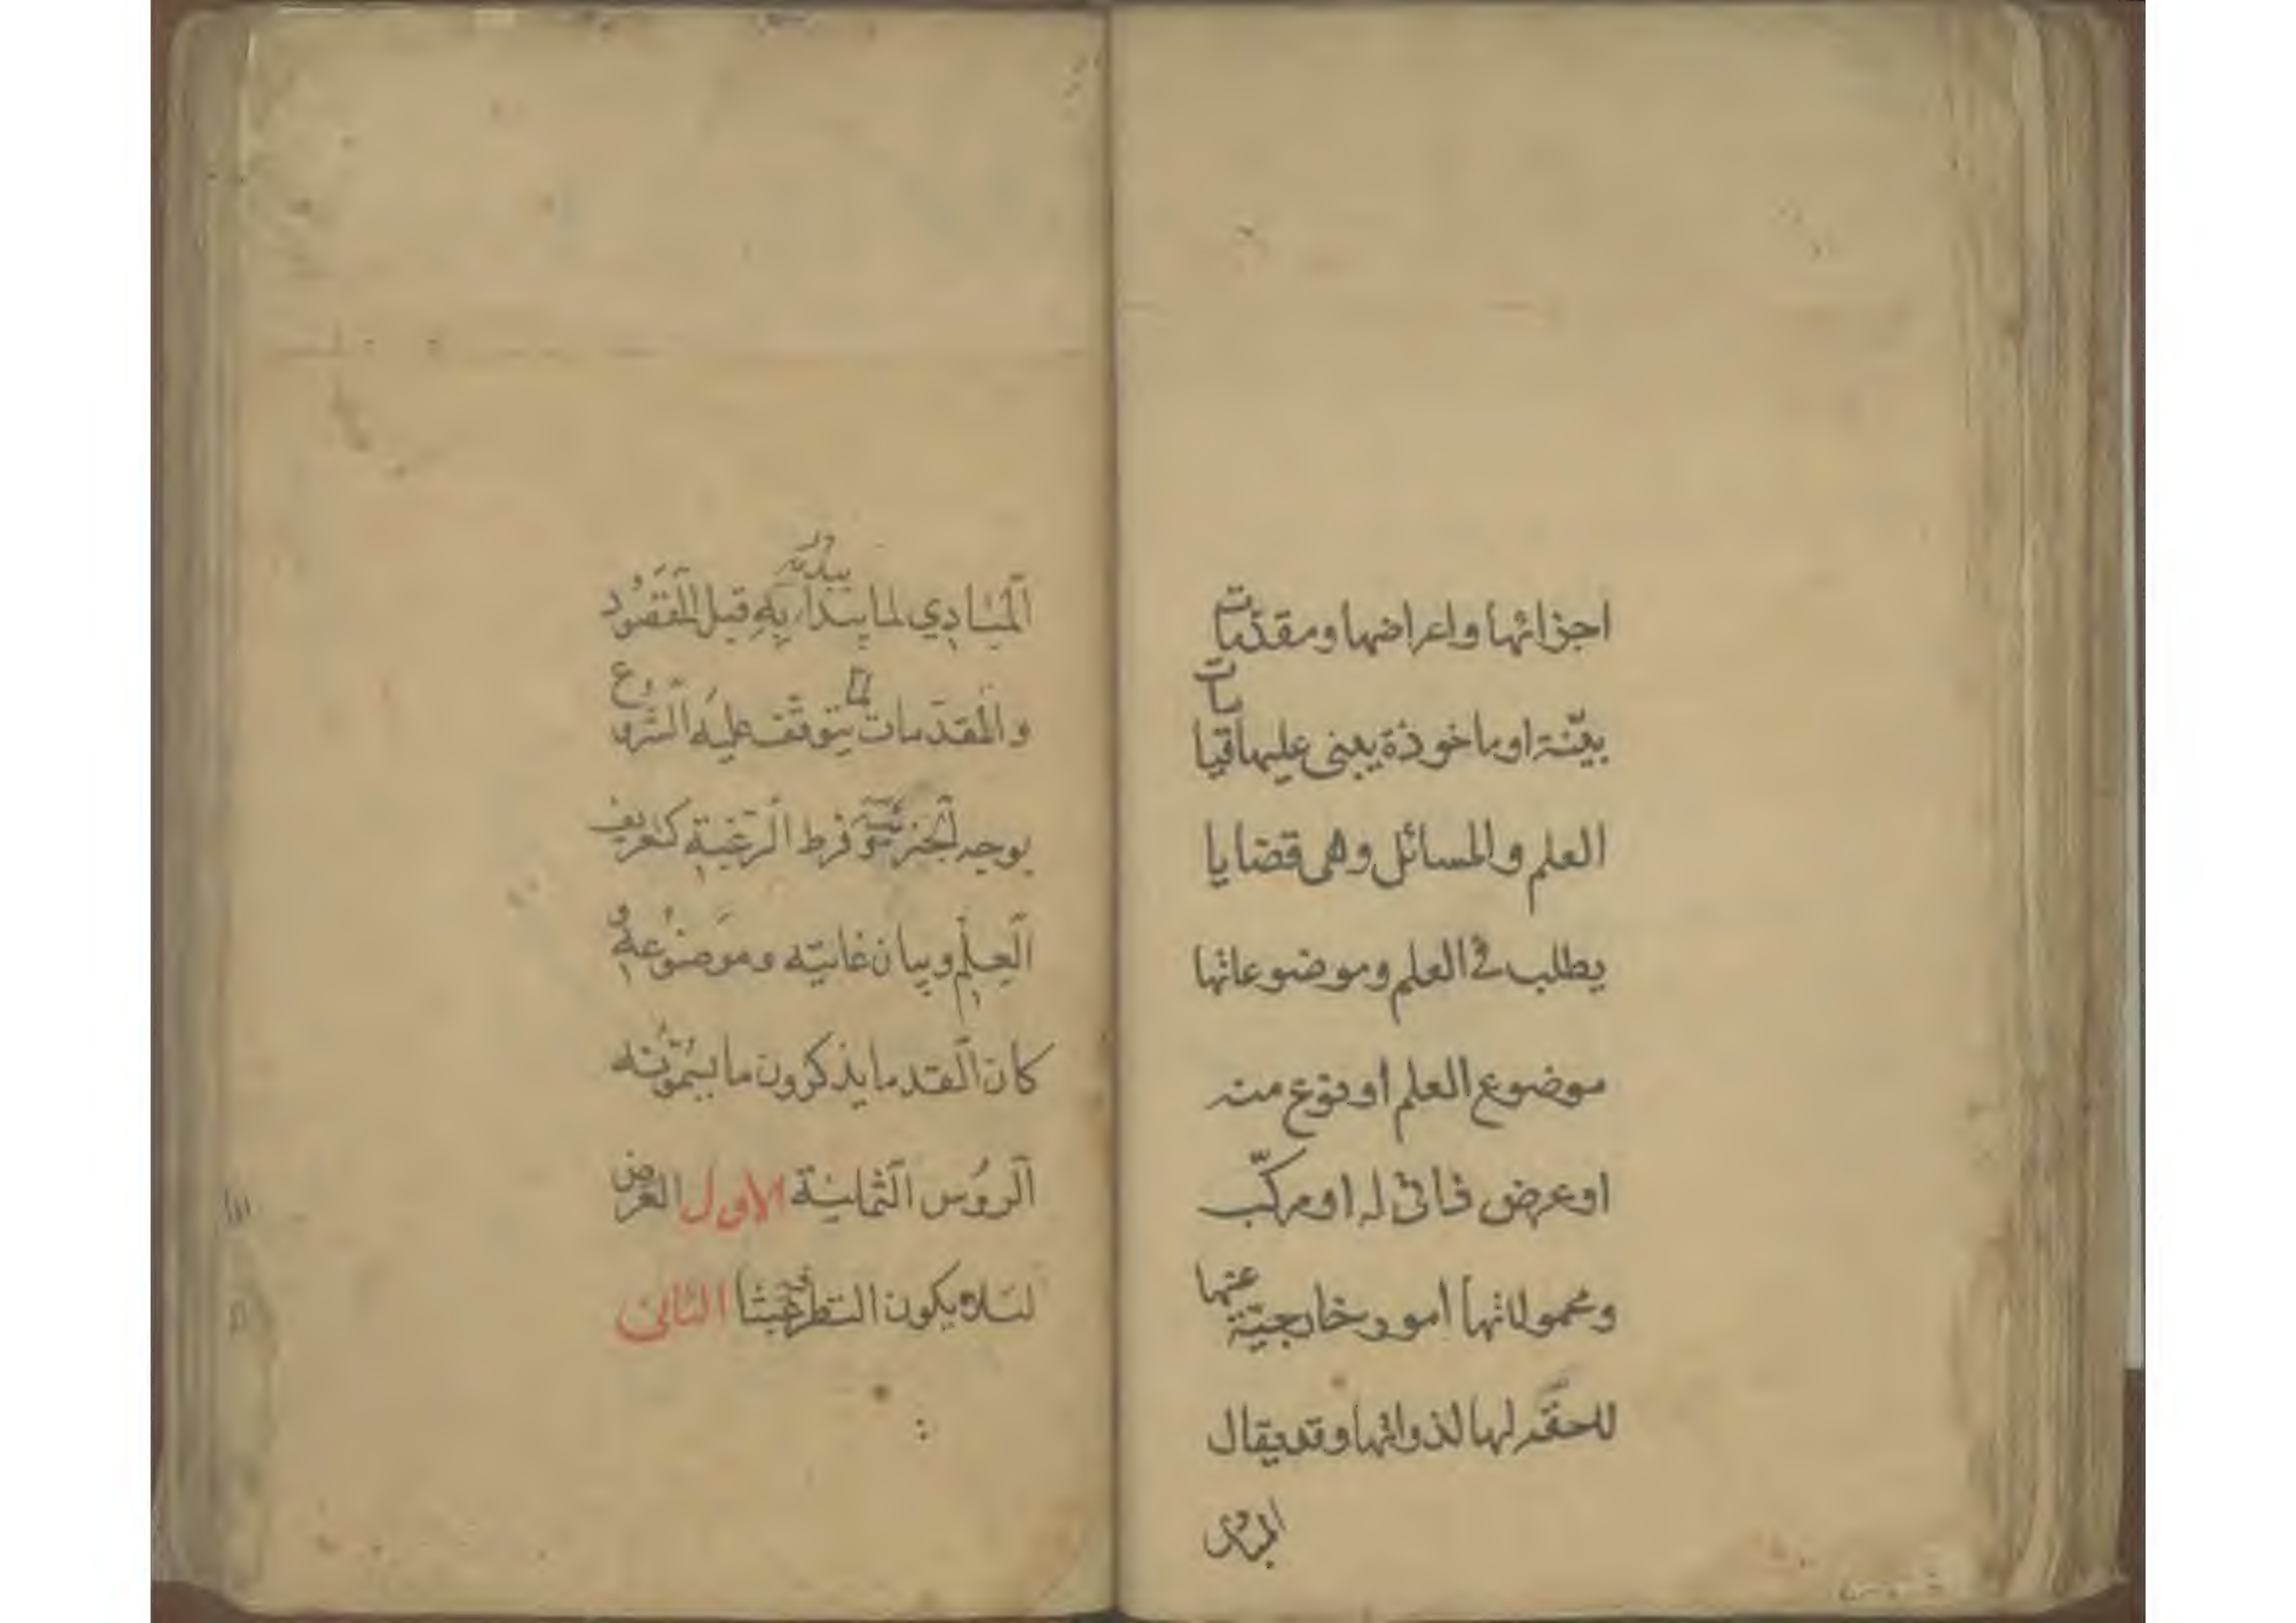 اجزائها واعراضها ومقدّمات
بيّنة او ماخوذة يبنى عليها قياسات
العلم والمسائل وهى قضايا
يطلب فى العلم وموضوعاتها
موضوع العلم او نوع منه
او عرض ذاتى له او مركّب
ومحمولاتها امور خارجيّة عنها
للحقه لها لذواتها وقد يقال
المبادى
اَلْمَبَادِي لما يبتدأ بِهِ قبل اَلْمَقصُود
والمُقدّمات لما يتوقّف عليه الشّروع
بوجه الخبرة وفرط الرّغبة كتعريف
العِلْمِ وبيان غايته وموضُوعِهِ وَ
كان القدما يذكرون ما يسمّونه
الرؤُس الثّمانية الاول الغرض
لئلا يكون النّظر فيه عبثا الثانى